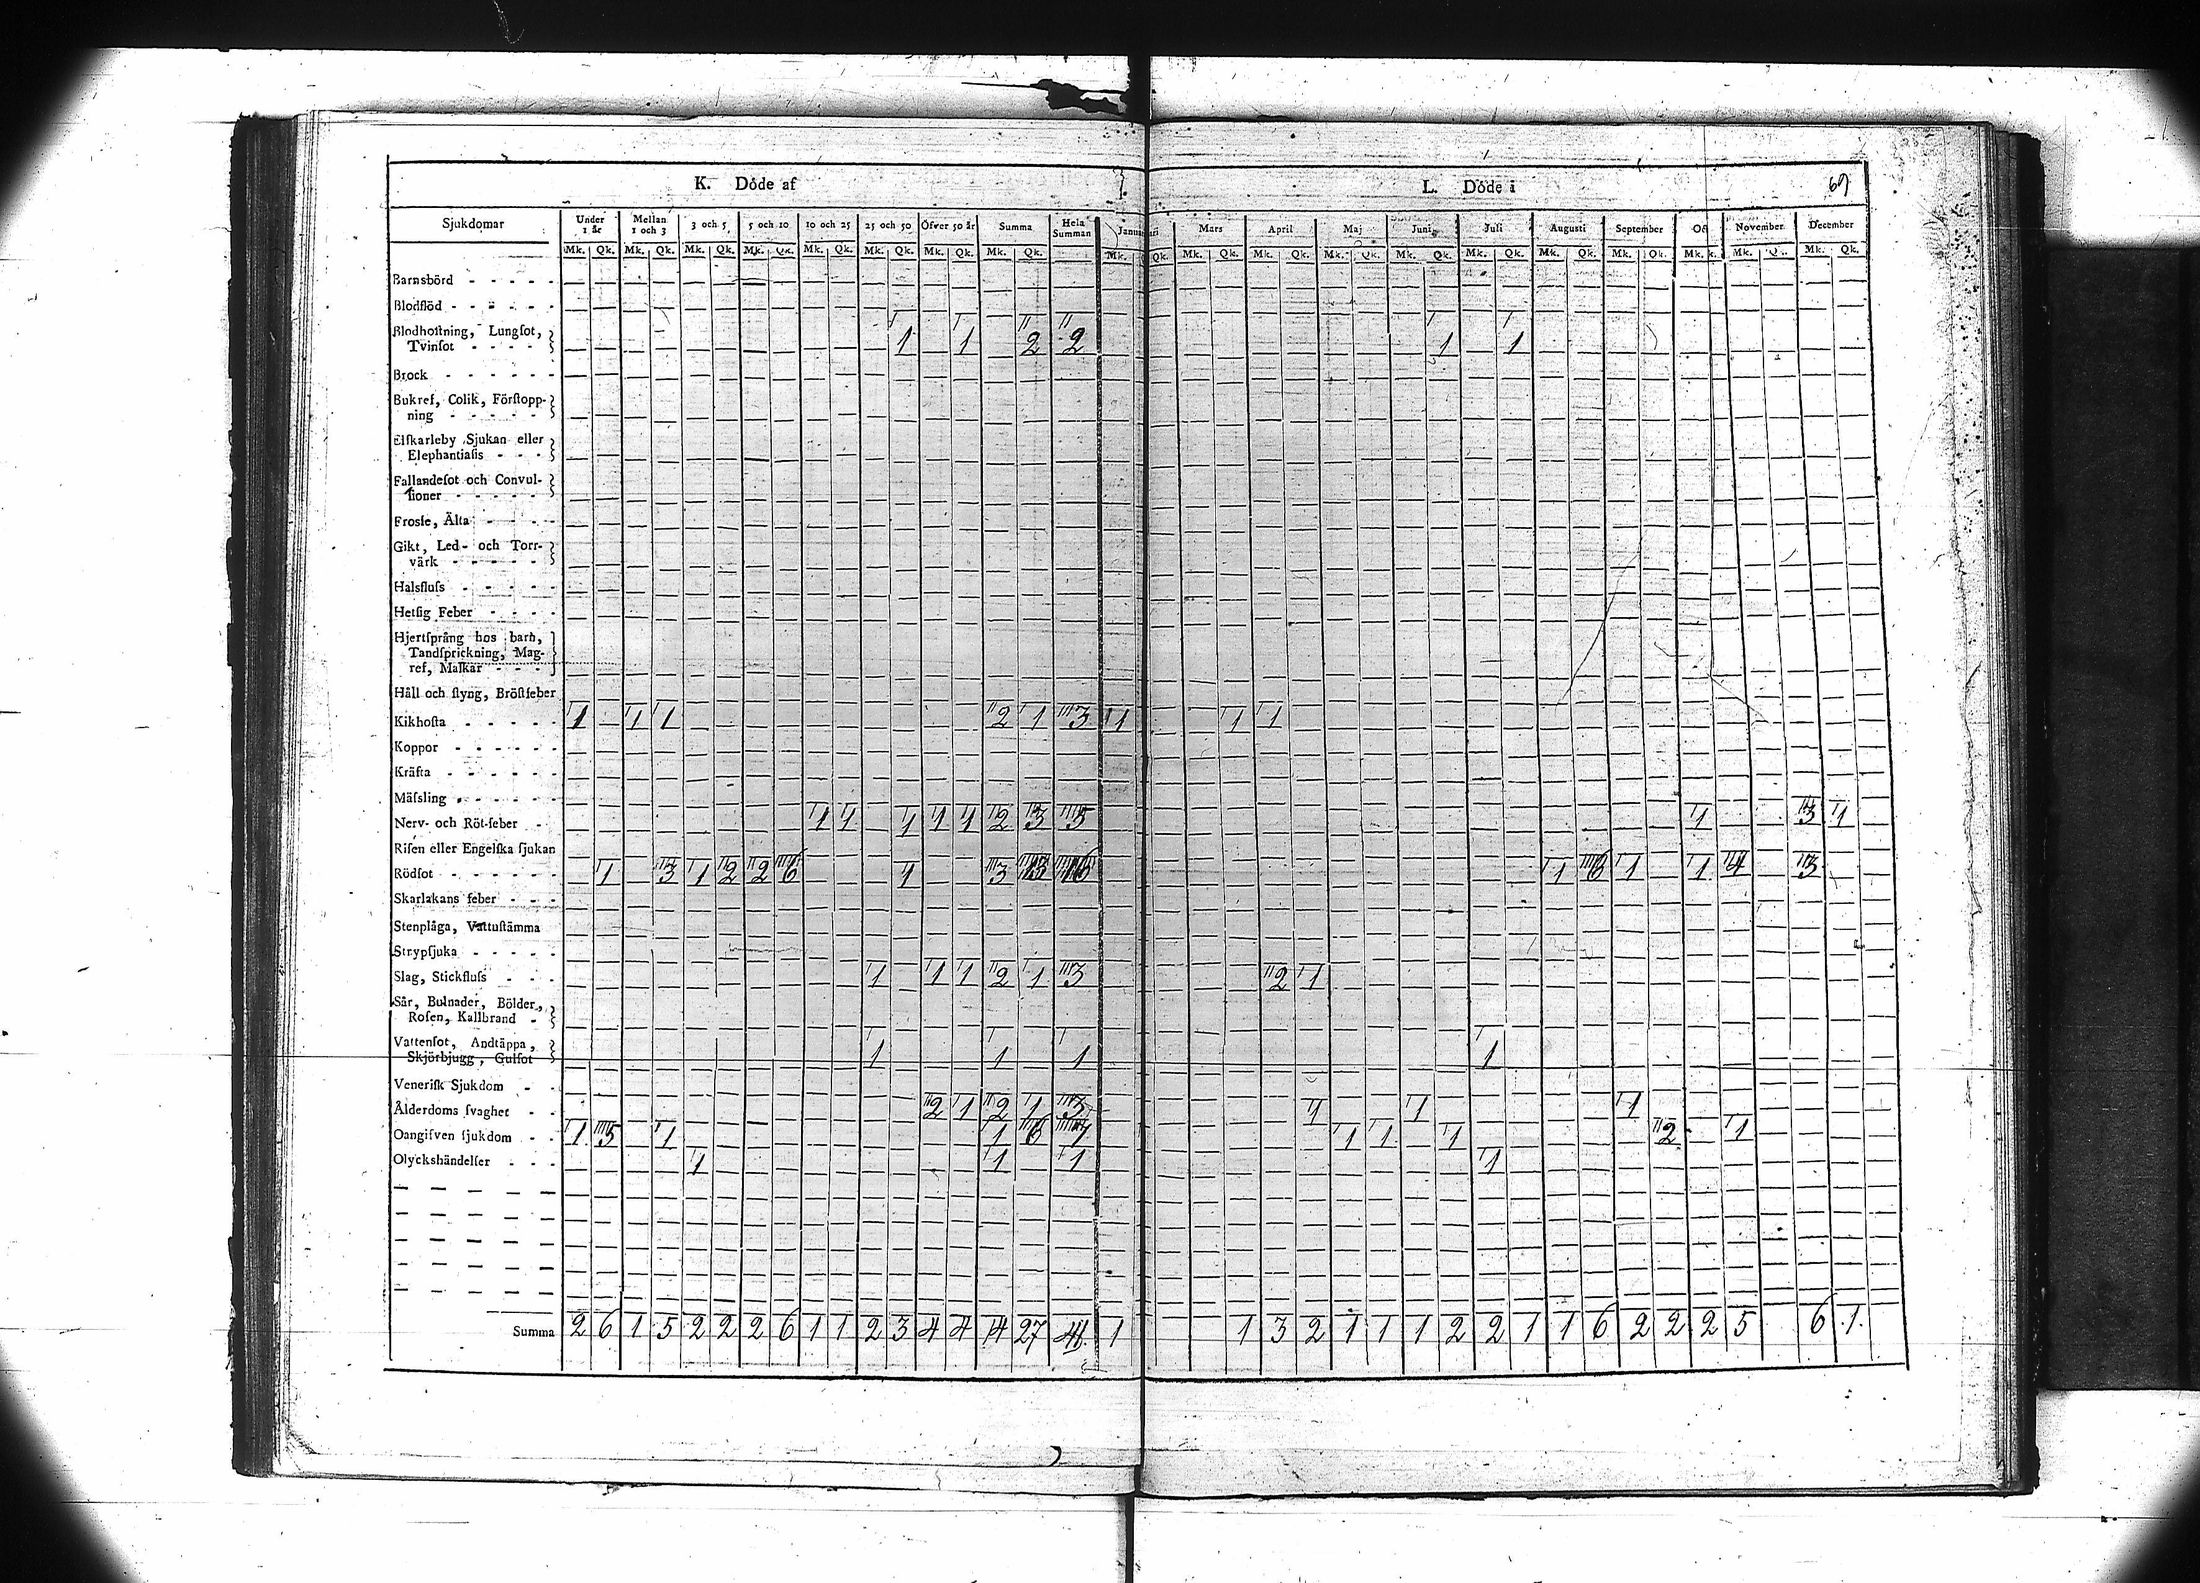 K. Döde af
L. Döde i
69
Sjukdomar Under 1 år Mellan 1 och 3 3 och 5 5 och 10 10 och 25 25 och 50 Öfver 50 år Summa Hela Summan Mars April Maj Juni Juli Augusti September November December
Mk. Qk. Mk. Qk. Mk. Qk. Mk. Qk. Mk. Qk. Mk. Qk. Mk. Qk. Mk. Qk. Mk. Qk. Mk. Qk. Mk. Qk. Mk. Qk. Mk. Qk. Mk. Qk. Mk. Qk. Mk. Qk. Mk. Mk. Mk. Qk.
Barnsbörd - - - - -
Blodflöd - - - - -
Blodhostning, Lungsot,
Tvinsot - - - - 1 1 2 2 1 1
Brock - - - - - -
Bukref, Colik, Förstopp-
ning - - - - -
Elfkarleby Sjukan eller
Elephantiasis - - -
Fallandesot och Convul-
sioner - - - - -
Frossa, Älta - - - -
Gikt, Led- och Torr-
värk - - - - -
Halsfluss - - - - -
Hetsig Feber - - - -
Hjertsprång hos barn,
Tandsprickning, Mag-
ref, Maskar - - -
Håll och styng, Bröstfeber
Kikhosta - - - - - 1 1 1 2 1 3 1 1 1
Koppor - - - - - -
Kräfta - - - - - -
Mässling - - - - - -
Nerv- och Röt-feber - 1 1 1 1 1 2 3 5 1 3 1
Risen eller Engelska sjukan
Rödsot - - - - - - 1 3 1 2 2 6 1 3 13 16 1 6 1 1 4 3
Skarlakans feber - - -
Stenplåga, Vattustämma
Strypsjuka - - - - -
Slag, Stickfluss - - - 1 1 1 2 1 3 2 1
Sår, Bulnader, Bölder,
Rosen, Kallbrand -
Vattensot, Andtäppa,
Skjörbjugg, Gulsot 1 1 1 1
Venerisk Sjukdom - -
Ålderdoms svaghet - - 2 1 2 1 3 1 1 1
Oangifven sjukdom - - 1 5 1 1 6 7 1 1 1 2 1
Olyckshändelser - - - 1 1 1 1
Summa 2 6 1 5 2 2 2 6 1 1 2 3 4 4 14 27 41 1 1 3 2 1 1 1 2 2 1 1 6 2 2 2 5 6 1